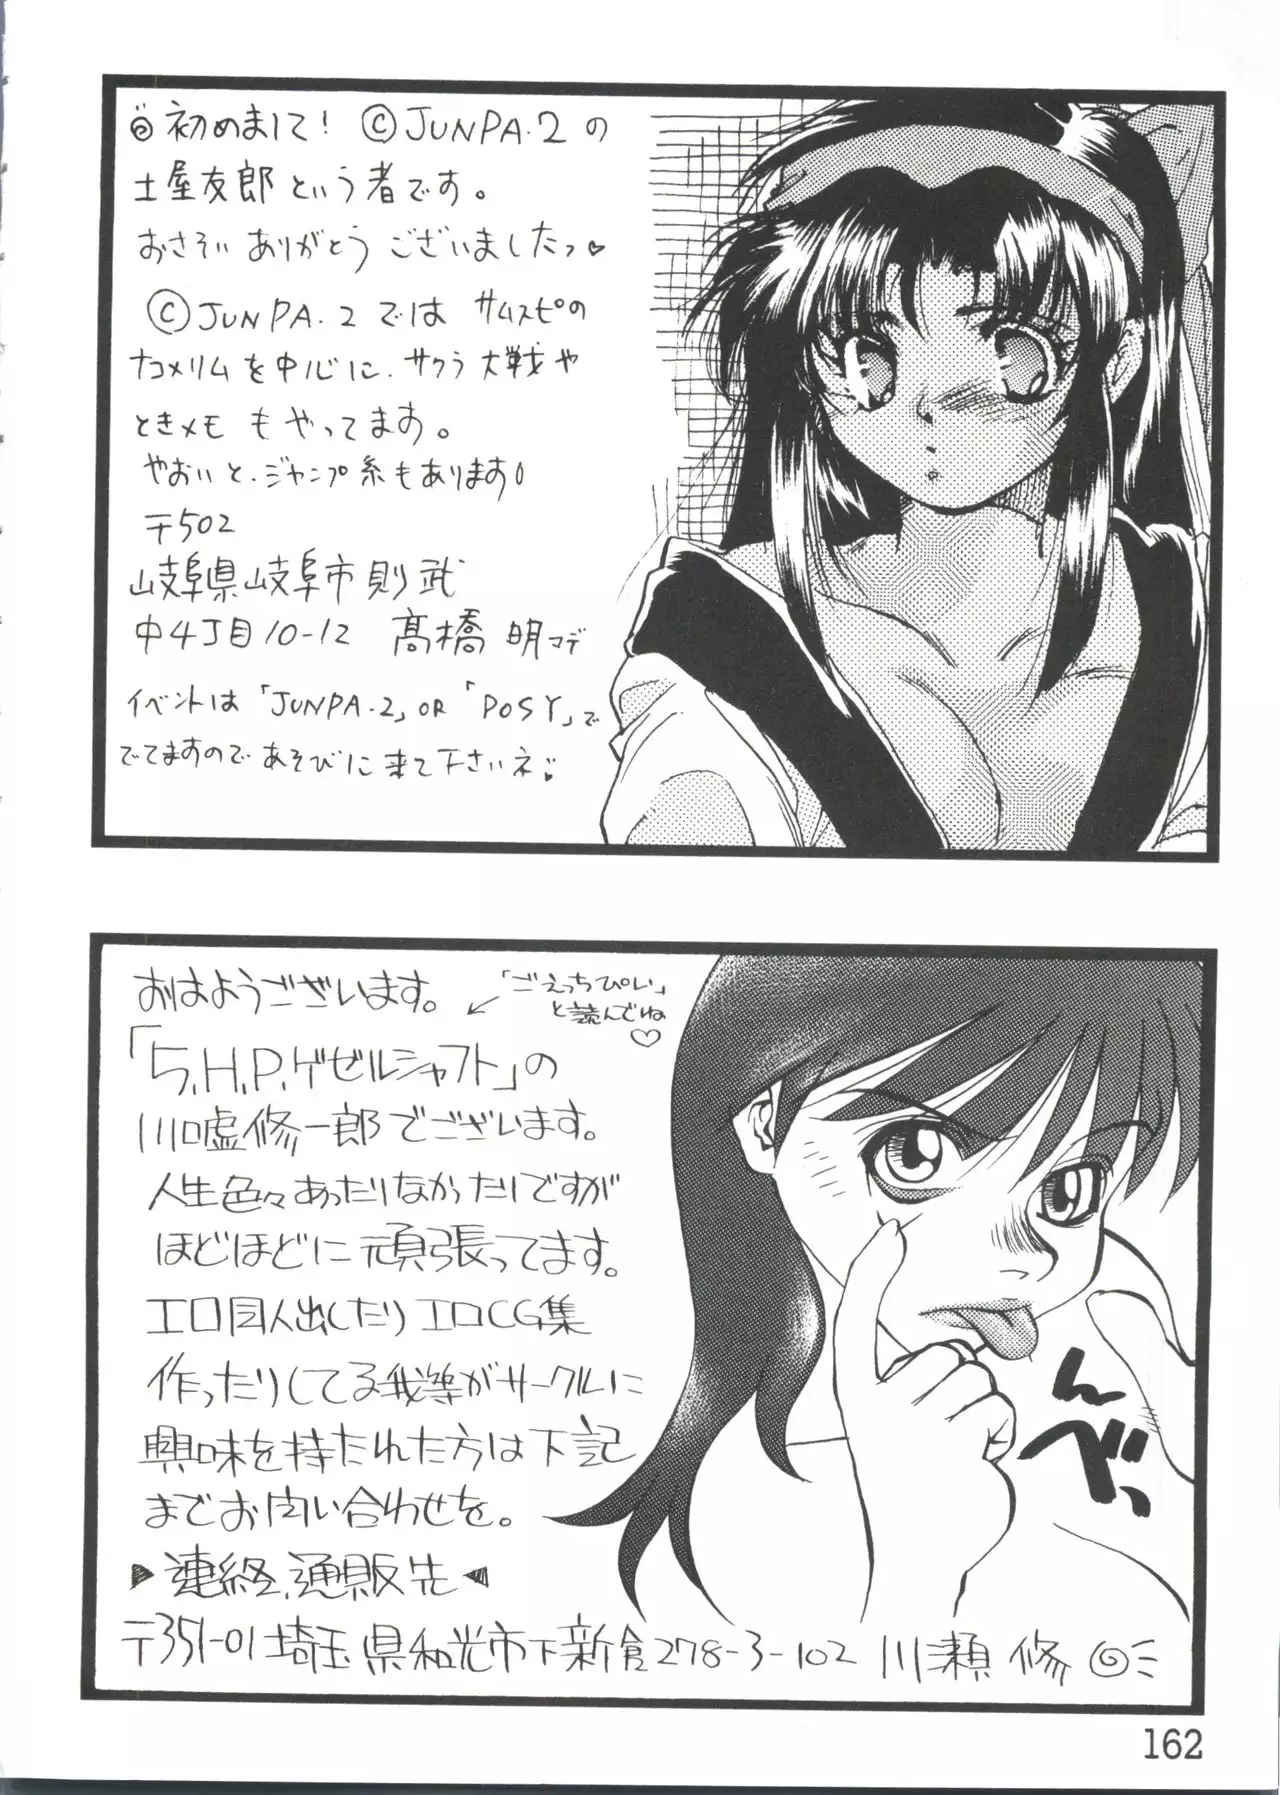 初めまして! ©JUNPA.2の
土屋友郎という者です。
おさそい ありがとう ございましたっ♡
©JUNPA.2では サムスピの
ナコメリムを中心に、サクラ大戦や
ときメモ もやってます。
やおいと、ジャンプ系もあります!
〒502
岐阜県岐阜市則武
中4丁目10-12 髙橋 明マデ
イベントは「JUNPA.2」OR「POSY」で
でてますので あそびに 来て下さいネ
おはようございます。
「ごえっちぴい」
と読んでね
♡
「5.H.P.ゲゼルシャフト」の
川口虚修一郎でございます。
人生色々あったりなかったりですが
ほどほどに頑張ってます。
エロ同人出したりエロCG集
作ったりしてる我等がサークルに
興味を持たれた方は下記
までお問い合わせを。
▶連絡、通販先◀
〒351-01埼玉県和光市下新倉278-3-102 川瀬 修
んべっ
162